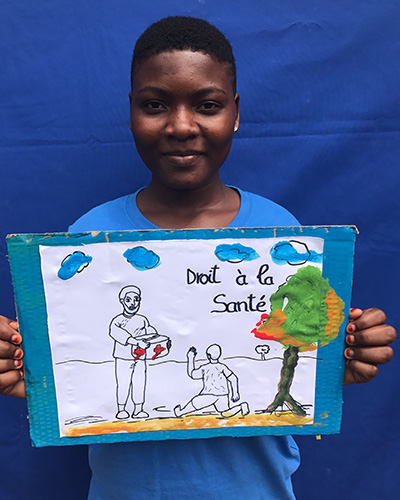 Droit à la
Santé